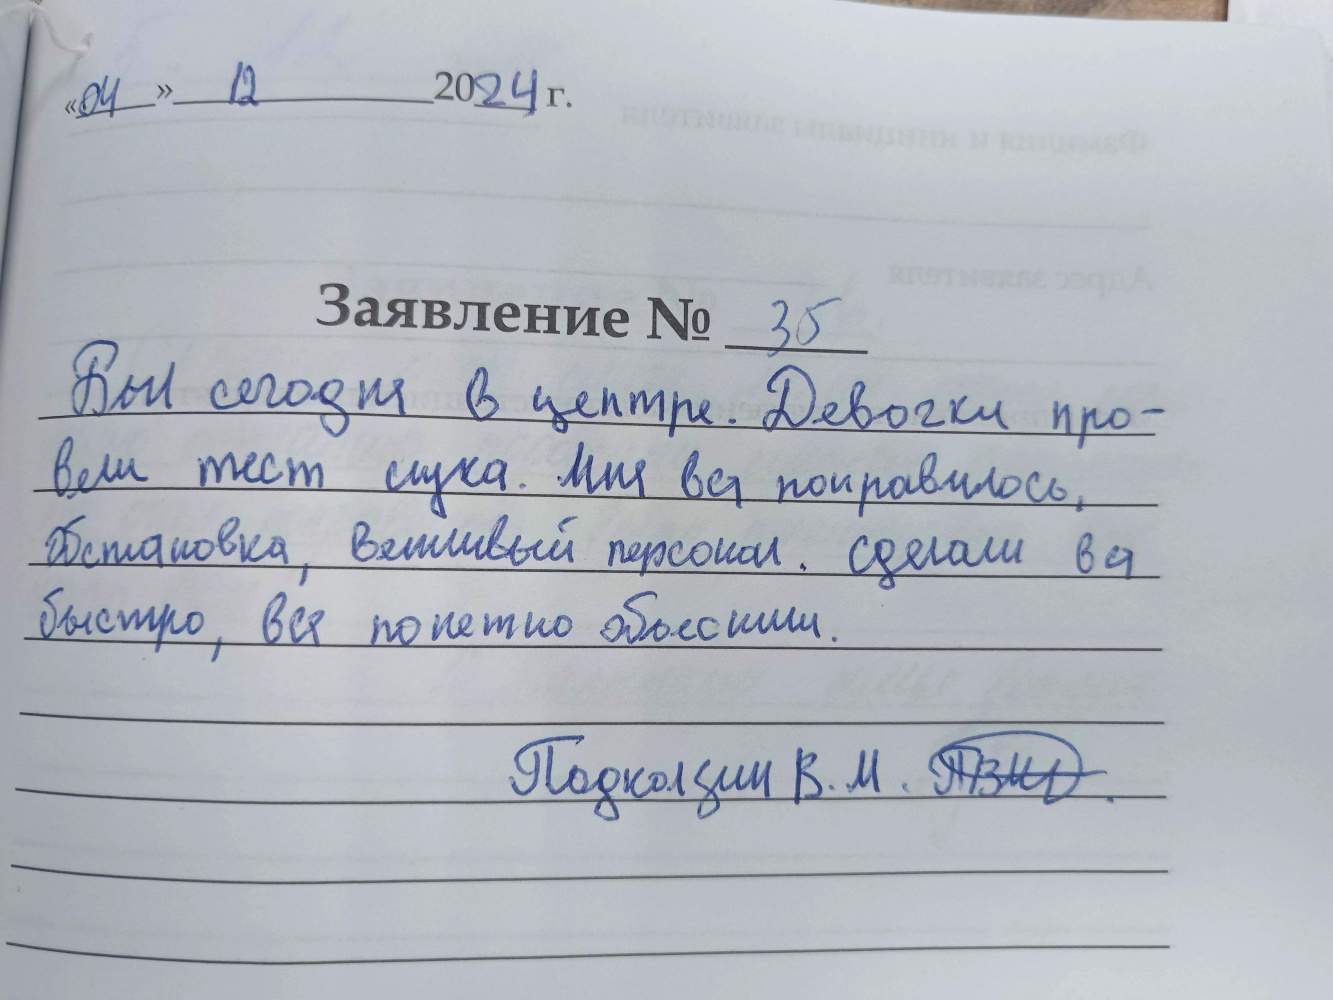 «04» 12 2024 г.
Заявление № 35
Был сегодня в центре. Девочки про-
вели тест слуха. Мня вся понравилось,
обстановка, вежливый персонал. сделали вся
быстро, вся понетно обьеснили.
Подколзин В. М.